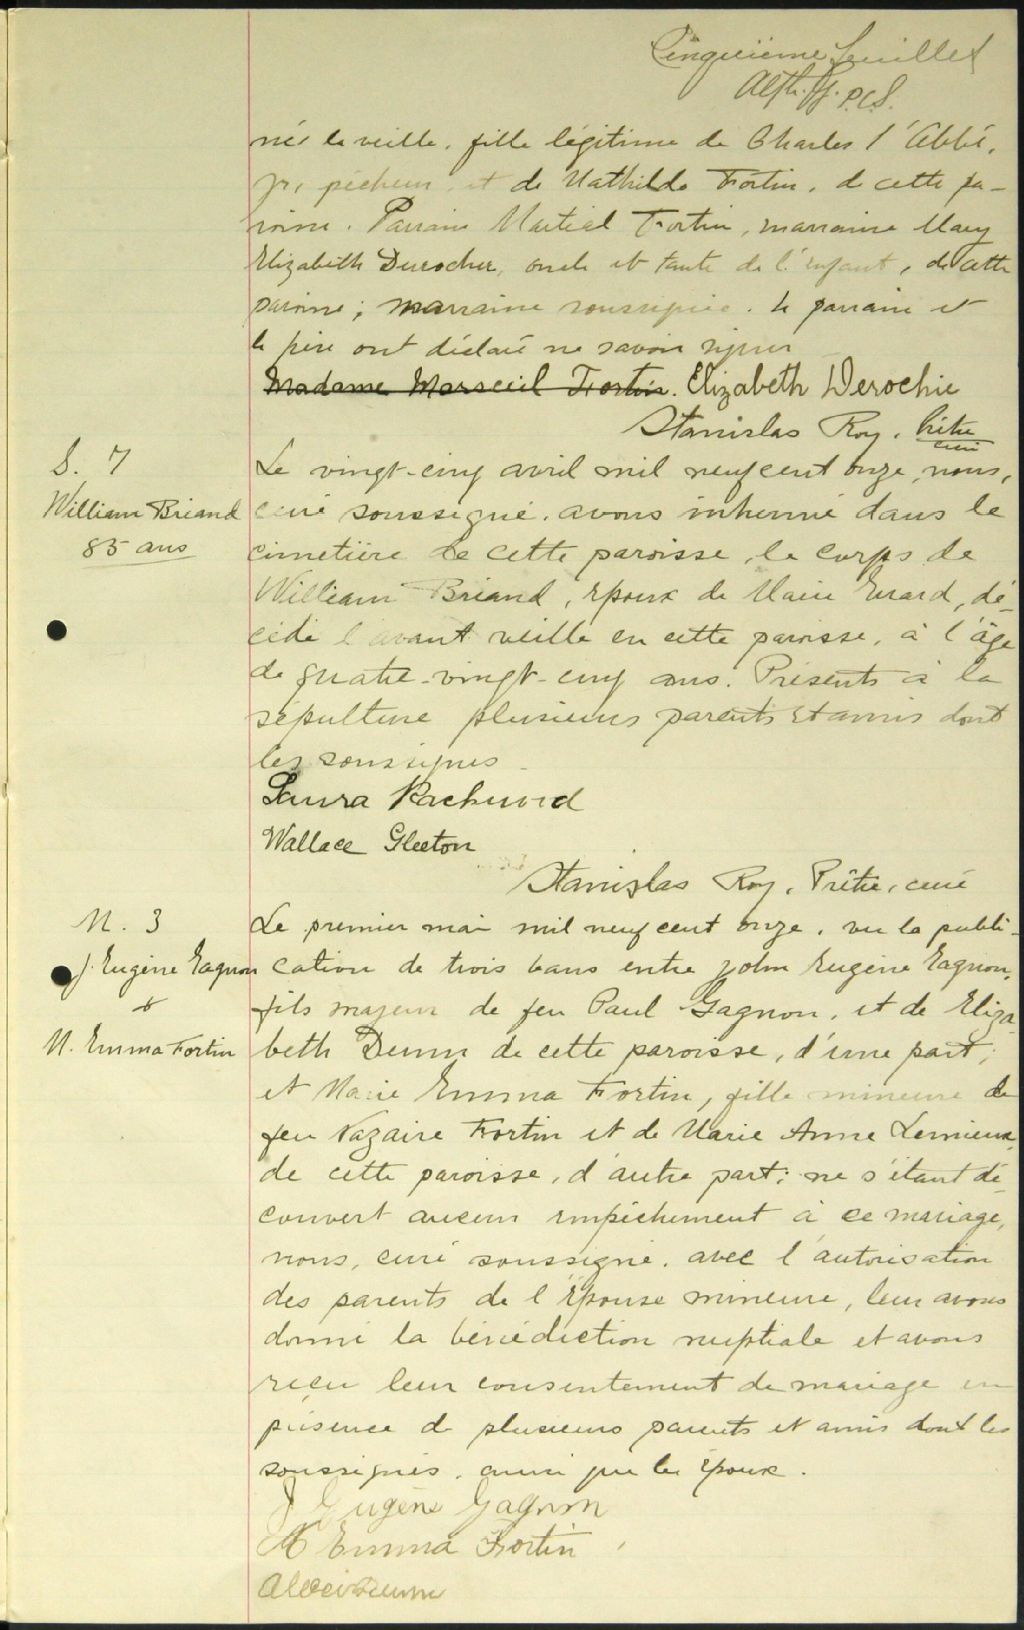 Cinquième Feuillet
P.C.S.
née la veille, fille légitime de Charles l'Abbé,
jr, pêcheur, et de Mathilde Fortin, de cette pa-
roisse. Parrain Martial Fortin, marraine Mary
Elizabeth Durocher, oncle et tante de l'enfant, de cette
paroisse; marraine soussignée. Le parrain et
le père ont déclaré ne savoir signer
Madame Marseil Fortin. Elizabeth Derochie
Stanislas Roy, Prêtre
curé
S. 7
William Briand
85 ans
Le vingt-cinq avril mil neuf cent onze, nous,
curé soussigné, avons inhumé dans le
cimetière de cette paroisse, le corps de
William Briand, époux de Marie Evard, dé-
cédé l'avant veille en cette paroisse, à l'âge
de quatre-vingt-cinq ans. Présents à la
sépulture plusieurs parents et amis dont
les soussignés
Laura
Wallace Gleeton
Stanislas Roy, Prêtre, curé
M. 3
J. Eugène Gagnon
&
M. Emma Fortin
Le premier mai mil neuf cent onze, vu la publi-
cation de trois bans entre John Eugène Gagnon,
fils majeur de feu Paul Gagnon, et de Eliza-
beth Dunn de cette paroisse, d'une part;
et Marie Emma Fortin, fille mineure de
feu Nazaire Fortin et de Marie Anne Lemieux,
de cette paroisse, d'autre part; ne s'étant dé-
couvert aucun empêchement à ce mariage,
nous, curé soussigné, avec l'autorisation
des parents de l'épouse mineure, leur avons
donné la bénédiction nuptiale et avons
reçu leur consentement de mariage en
présence de plusieurs parents et amis dont les
soussignés, ainsi que les époux.
J Eugène Gagnon
M Emma Fortin